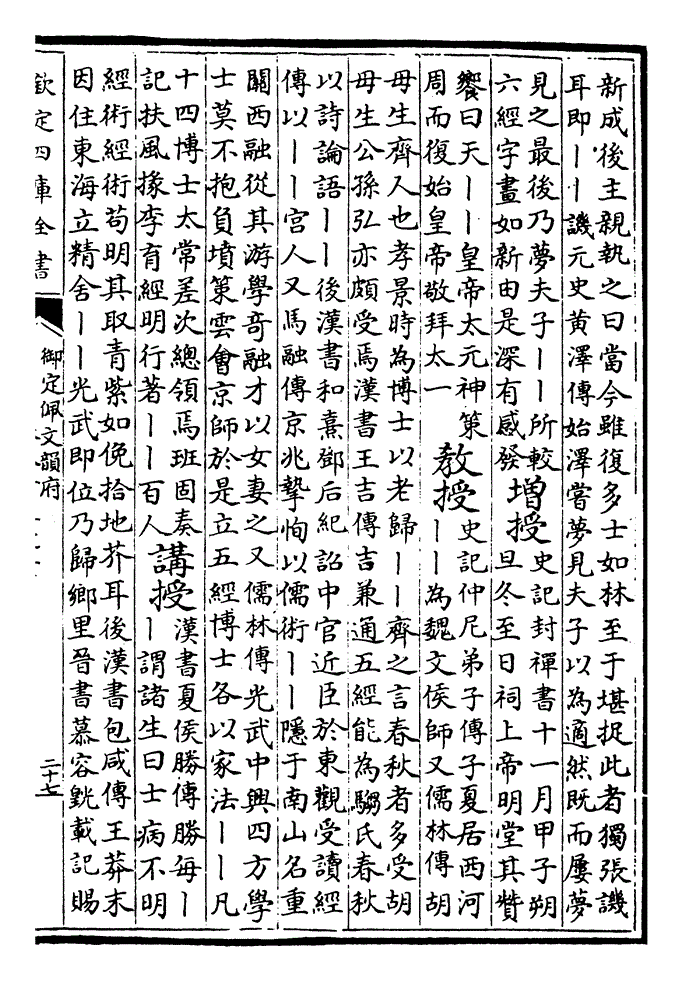 新成後主親執之曰當今雖復多士如林至于堪捉此者獨張譏
耳即｜｜譏元史黄澤傳始澤嘗夢見夫子以為適然既而屢夢
見之最後乃夢夫子｜｜所較
六經字畫如新由是深有感發
增授
史記封禪書十一月甲子朔
旦冬至日祠上帝明堂其贊
饗曰天｜｜皇帝太元神策
周而復始皇帝敬拜太一
教授
史記仲尼弟子傳子夏居西河
｜｜為魏文侯師又儒林傳胡
毋生齊人也孝景時為博士以老歸｜｜齊之言春秋者多受胡
毋生公孫弘亦頗受焉漢書王吉傳吉兼通五經能為騶氏春秋
以詩論語｜｜後漢書和熹鄧后紀詔中官近臣於東觀受讀經
傳以｜｜宮人又馬融傳京兆摯恂以儒術｜｜隱于南山名重
關西融從其游學奇融才以女妻之又儒林傳光武中興四方學
士莫不抱負墳策雲會京師於是立五經博士各以家法｜｜凡
十四博士太常差次總領焉班固奏
記扶風掾李育經明行著｜｜百人
講授
漢書夏侯勝傳勝每｜
｜謂諸生曰士病不明
經術經術苟明其取青紫如俛拾地芥耳後漢書包咸傳王莽末
因住東海立精舍｜｜光武即位乃歸鄉里晉書慕容皝載記賜
欽定四庫全書
御定佩文韻府
二十七